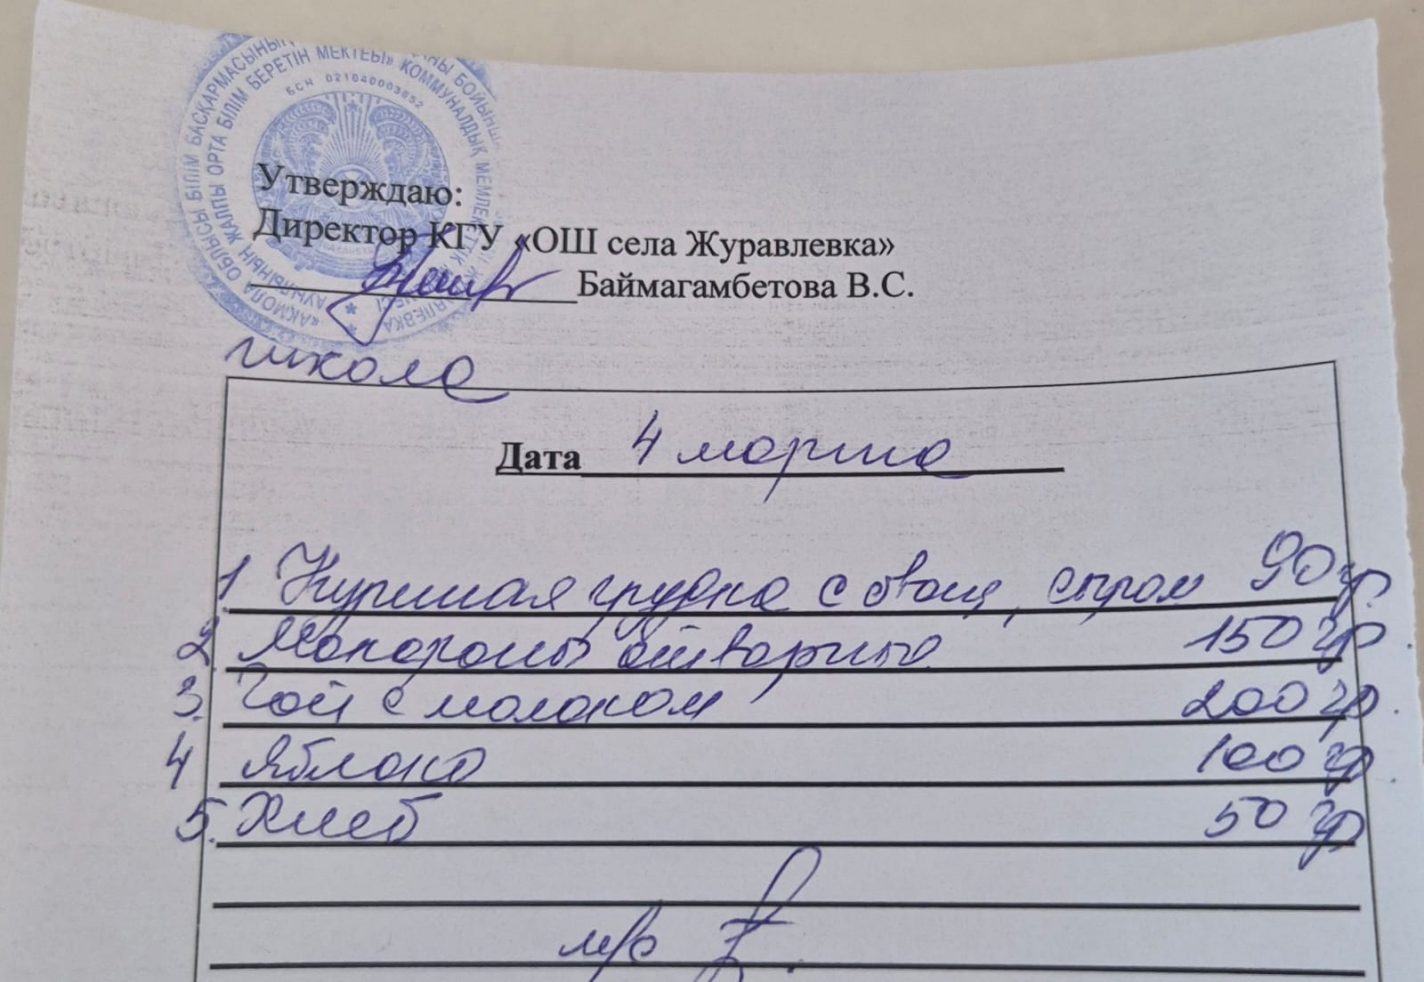 «АҚМОЛА ОБЛЫСЫ БІЛІМ БАСҚАРМАСЫНЫҢ
ЖАЛПЫ ОРТА БІЛІМ БЕРЕТІН МЕКТЕБІ» КОММУНАЛДЫҚ МЕМЛЕКЕТТІК
БСН 021040003652
Утверждаю:
Директор КГУ «ОШ села Журавлевка»
Баймагамбетова В.С.
школа
Дата 4 марта
1 Куриная грудка с овощ, сыром 90 гр.
2. Макароны отварные 150 гр.
3. Чай с молоком 200 гр.
4 Яблоко 100 гр.
5. Хлеб 50 гр.
м/с